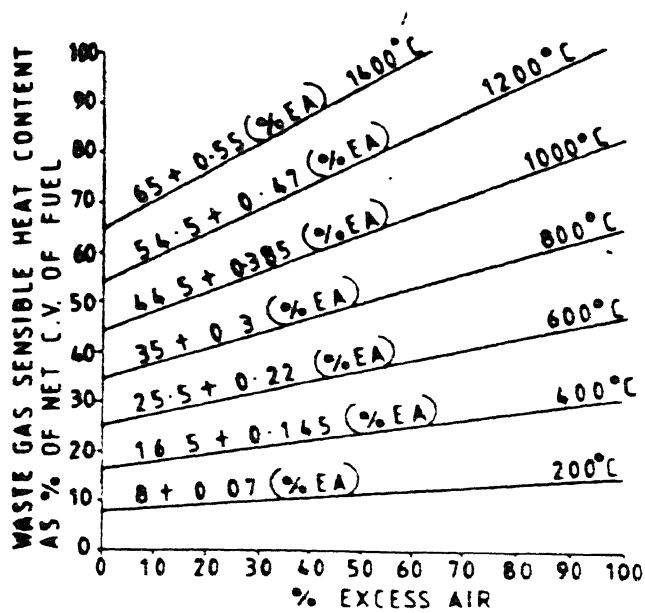 WASTE GAS SENSIBLE HEAT CONTENT
AS % OF NET C.V. OF FUEL
100
90
80
70
60
50
40
30
20
10
0
65 + 0.55 (%EA) 1400°C
54.5 + 0.47 (%EA) 1200°C
44 5 + 0.385 (%EA) 1000°C
35 + 0 3 (%EA) 800°C
25.5 + 0.22 (%EA) 600°C
16 5 + 0.145 (%EA) 400°C
8 + 0 07 (%EA) 200°C
0 10 20 30 40 50 60 70 80 90 100
% EXCESS AIR